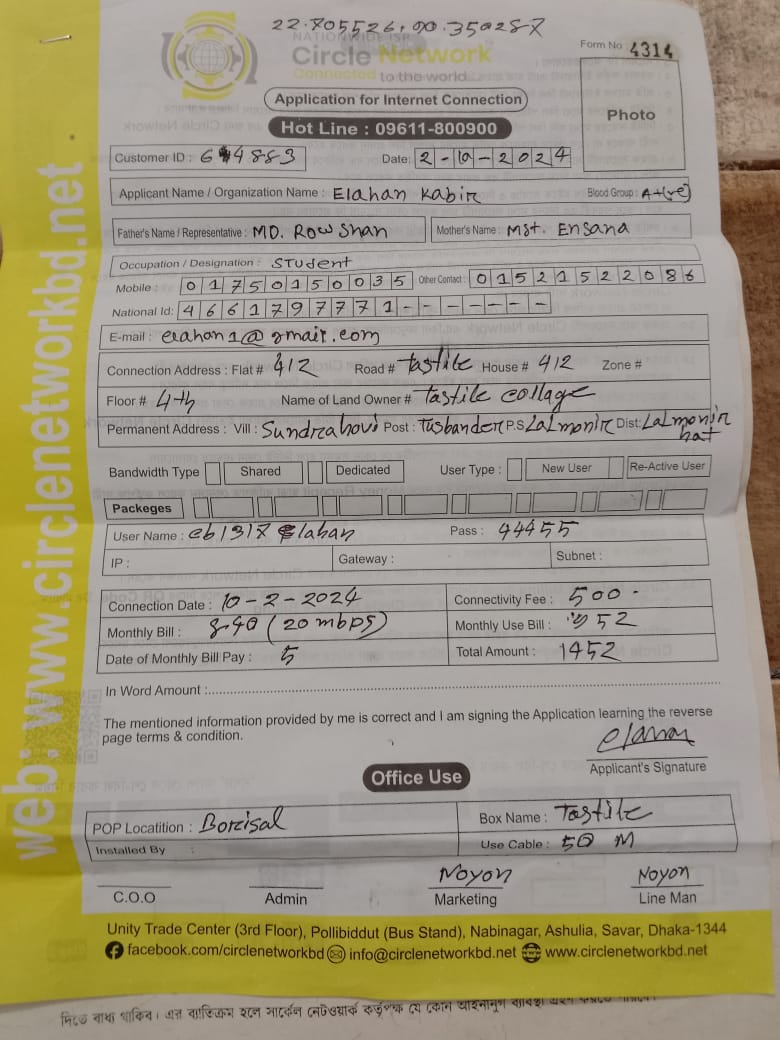 22.705526, 90.350287
NATIONWIDE ISP
Circle Network
Connected to the world
Form No : 4314
Application for Internet Connection
Photo
Hot Line : 09611-800900
Customer ID : 644883 Date: 2-10-2024
Applicant Name / Organization Name : Elahan Kabir Blood Group : A+(ve)
Father's Name / Representative : MD. Rowshan Mother's Name : Mst. Ensana
Occupation / Designation : Student
Mobile : 01750150035 Other Contact : 01521522086
National Id: 4661797771-------
E-mail : elahan1@gmail.com
Connection Address : Flat # 412 Road # Tastile House # 412 Zone #
Floor # 4th Name of Land Owner # Tastile collage
Permanent Address : Vill : Post : Tusbander P.S Lalmonir Dist: Lalmonir hat
Bandwidth Type Shared Dedicated User Type : New User Re-Active User
Packeges
User Name : cb1317 Elahan Pass : 44455
IP : Gateway : Subnet :
Connection Date : 10-2-2024 Connectivity Fee : 500
Monthly Bill : 840 (20 mbps) Monthly Use Bill : 952
Date of Monthly Bill Pay : 5 Total Amount : 1452
In Word Amount :
The mentioned information provided by me is correct and I am signing the Application learning the reverse
page terms & condition.
elahan
Applicant's Signature
Office Use
POP Locatition : Borisal Box Name : Tastile
Installed By : Use Cable : 50 M
Noyon Noyon
C.O.O Admin Marketing Line Man
Unity Trade Center (3rd Floor), Pollibiddut (Bus Stand), Nabinagar, Ashulia, Savar, Dhaka-1344
facebook.com/circlenetworkbd info@circlenetworkbd.net www.circlenetworkbd.net
web: www.circlenetworkbd.net
দিতে বাধ্য থাকিব। এর ব্যতিক্রম হলে সার্কেল নেটওয়ার্ক কর্তৃপক্ষ যে কোন আইনানুগ ব্যবস্থা